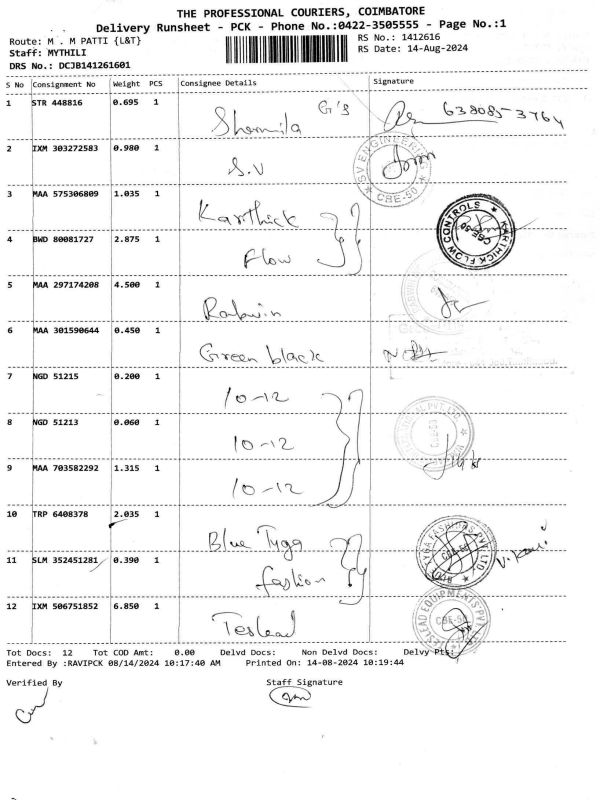 THE PROFESSIONAL COURIERS, COIMBATORE
Delivery Runsheet - PCK - Phone No.:0422-3505555 - Page No.:1
Route: M . M PATTI {L&T} RS No.: 1412616
Staff: MYTHILI RS Date: 14-Aug-2024
DRS No.: DCJB141261601
S No Consignment No Weight PCS Consignee Details Signature
1 STR 448816 0.695 1 Sharmila G's 638085-3764
2 IXM 303272583 0.980 1 S.V SV ENGINEERING CBE-50
3 MAA 575306809 1.035 1 Karthick KARTHICK FLOW CONTROLS CBE-50
4 BWD 80081727 2.875 1 Flow
5 MAA 297174208 4.500 1 Rabwin
6 MAA 301590644 0.450 1 Green black
7 NGD 51215 0.200 1 10-12
8 NGD 51213 0.060 1 10-12 PVT.LTD CBE-50
9 MAA 703582292 1.315 1 10-12
10 TRP 6408378 2.035 1 Blue Tyga TYGA FASHIONS PVT LTD
11 SLM 352451281 0.390 1 fashion V.
12 IXM 506751852 6.850 1 Teslead TESLEAD EQUIPMENTS PVT CBE-50
Tot Docs: 12 Tot COD Amt: 0.00 Delvd Docs: Non Delvd Docs: Delvy Pts:
Entered By :RAVIPCK 08/14/2024 10:17:40 AM Printed On: 14-08-2024 10:19:44
Verified By Staff Signature